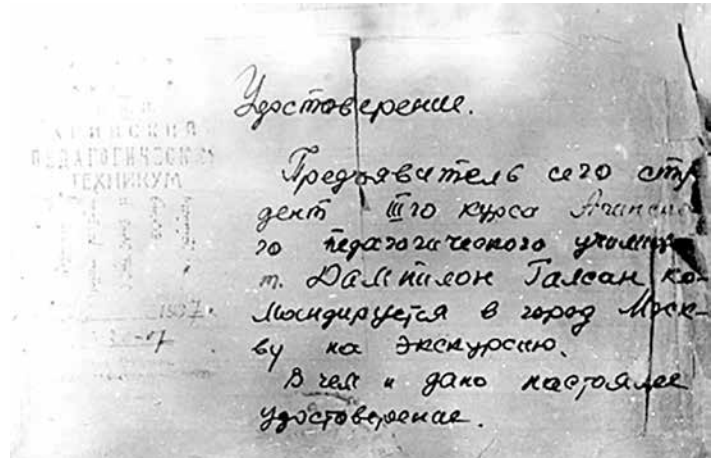 АГИНСКИЙ
ПЕДАГОГИЧЕСКИЙ
ТЕХНИКУМ
1937
Удостоверение.
Предъявитель сего сту
дент III го курса Агинско
го педагогического училища
т. Дампилон Галсан ко-
мандируется в город Моск-
ву на экскурсию.
В чем и дано настоящее
удостоверение.